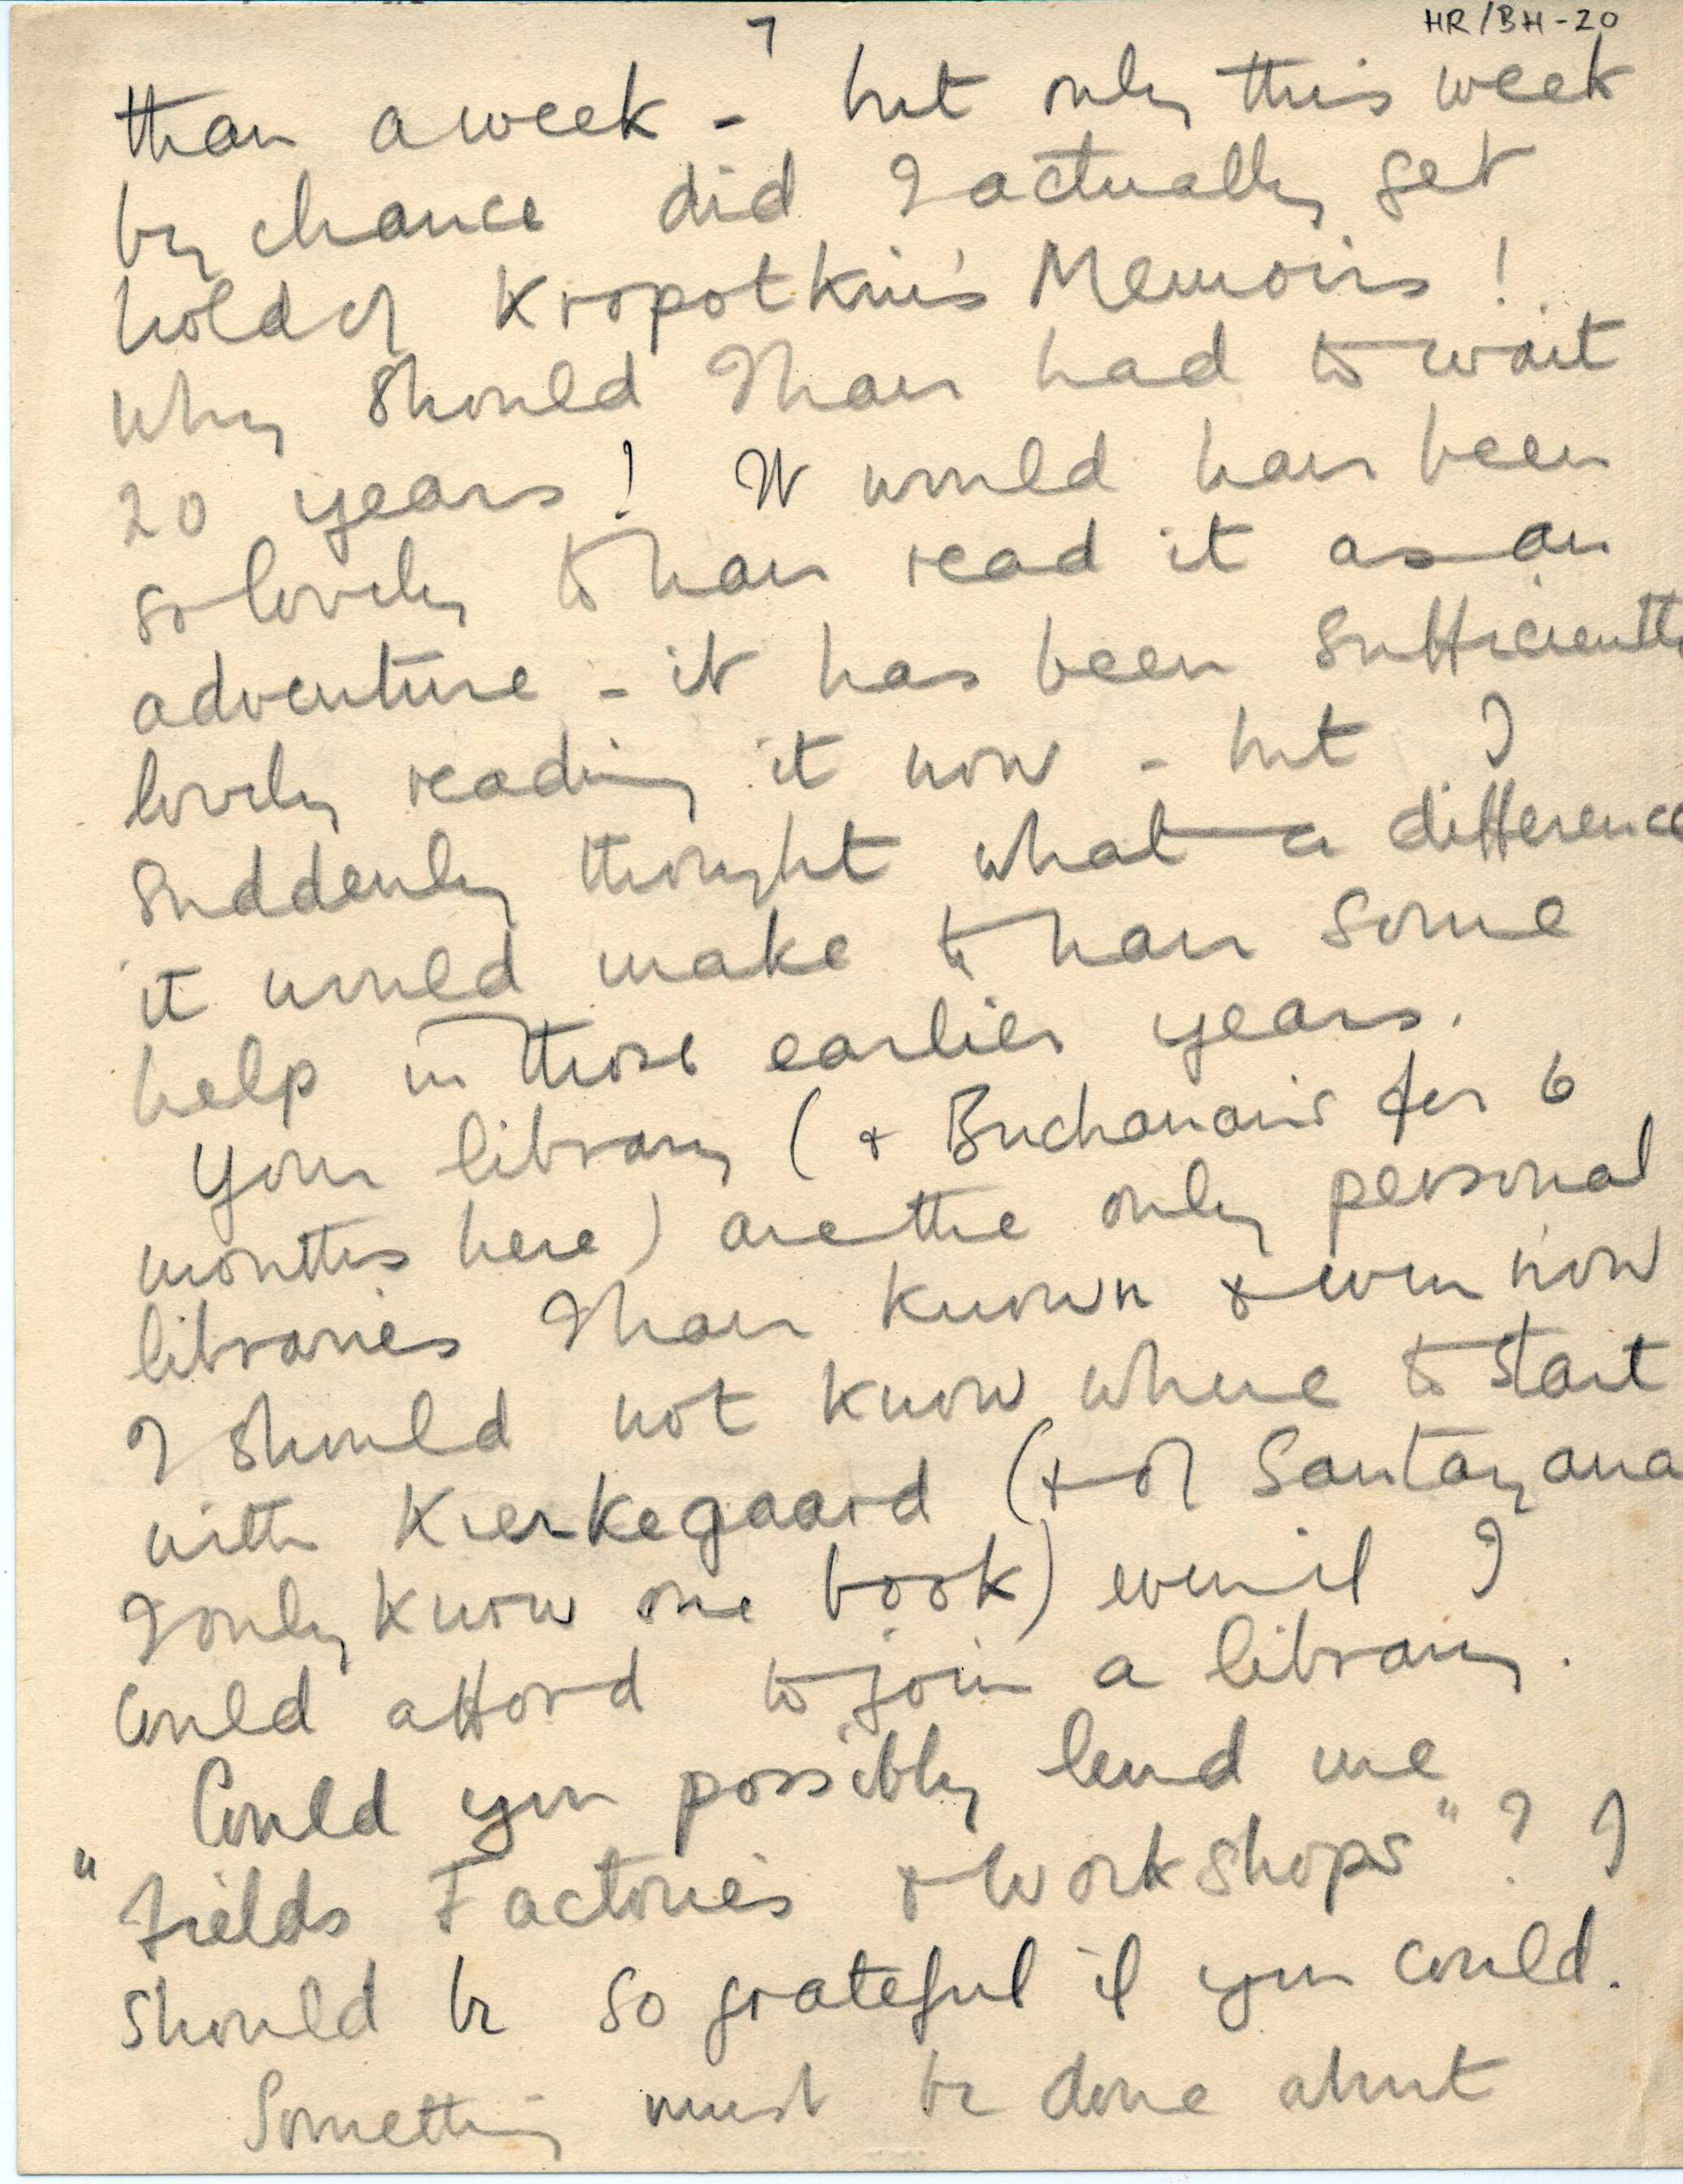 7
HR/BH-20
than a week - but only this week
by chance did I actually get
hold of Kropotkin's Memoirs!
Why should I have had to wait
20 years! It would have been
so lovely to have read it as an
adventure - it has been sufficiently
lovely reading it now - but I
suddenly thought what a difference
it would make to have some
help in those earlier years.
Your library (& Buchanan's for 6
months here) are the only personal
libraries I have known & even now
I should not know where to start
with Kierkegaard (& of Santayana
I only know one book) even if I
could afford to join a library.
Could you possibly lend me
"Fields Factories & Workshops"? I
should be so grateful if you could.
Something must be done about